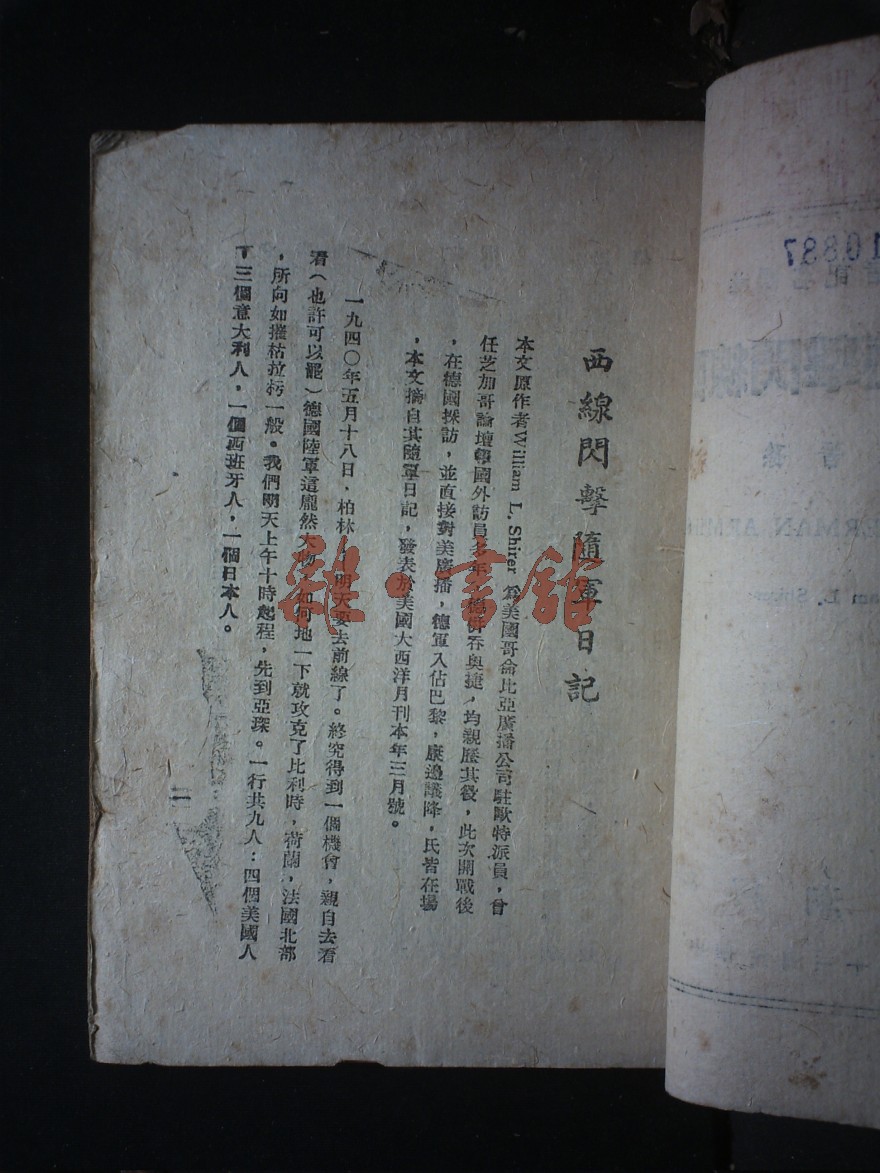 西線閃擊隨軍日記
本文原作者William L. Shirer 為美國哥侖比亞廣播公司駐歐特派員，曾
任芝加哥論壇報國外訪員多年，德併吞奧捷，均親歷其役，此次開戰後
，在德國採訪，並直接對美廣播，德軍入佔巴黎，康邊議降，氏皆在場
，本文摘自其隨軍日記，發表於美國大西洋月刊本年三月號。
一九四〇年五月十八日，柏林 明天要去前線了。終究得到一個機會，親自去看
看（也許可以罷）德國陸軍這龐然大物，如何地一下就攻克了比利時，荷蘭，法國北部
，所向如摧枯拉朽一般。我們明天上午十時起程，先到亞琛。一行共九人：四個美國人
，三個意大利人，一個西班牙人，一個日本人。
一
10887
ERMAN ARM
am L. Shirer